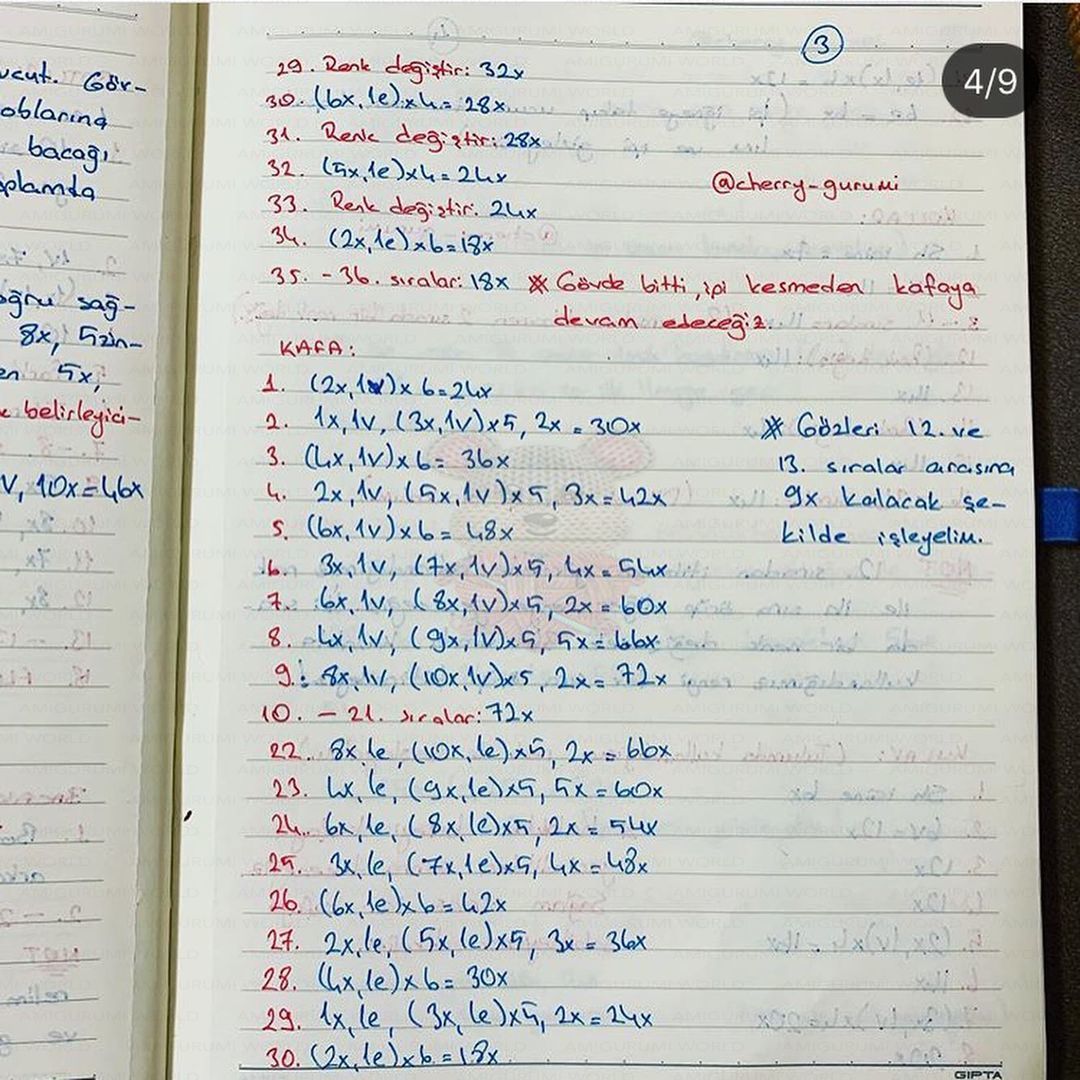 ucut. Gör-
oblarına
bacağı
plamda
oğru sağ-
8x, 5zin-
en 5x,
belirleyici-
V, 10x=46x
3
4/9
29. Renk değiştir: 32x
30. (6x,1e)x4=28x
31. Renk değiştir: 28x
32. (5x,1e)x4=24x
@cherry-gurumi
33. Renk değiştir: 24x
34. (2x,1e)x6=18x
35. - 36. sıralar: 18x * Gövde bitti, ipi kesmeden kafaya
devam edeceğiz.
KAFA:
1. (2x,1v)x6=24x
2. 1x,1v, (3x,1v)x5, 2x=30x
3. (4x,1v)x6= 36x
4. 2x,1v, (5x,1v)x5, 3x=42x
5. (6x,1v)x6= 48x
6. 3x,1v, (7x,1v)x5, 4x=54x
7. 6x,1v, (8x,1v)x5, 2x=60x
8. 4x,1v, (9x,1v)x5, 5x=66x
9. 8x,1v, (10x,1v)x5, 2x=72x
10. - 21. sıralar: 72x
22. 8x,1e, (10x,1e)x5, 2x=66x
23. 4x,1e, (9x,1e)x5, 5x=60x
24. 6x,1e, (8x,1e)x5, 2x=54x
25. 3x,1e, (7x,1e)x5, 4x=48x
26. (6x,1e)x6=42x
27. 2x,1e, (5x,1e)x5, 3x=36x
28. (4x,1e)x6= 30x
29. 1x,1e, (3x,1e)x5, 2x=24x
30. (2x,1e)x6=18x
* Gözleri 12. ve
13. sıralar arasına
9x kalacak şe-
kilde işleyelim.
GIPTA
AMIGURUMI WORLD